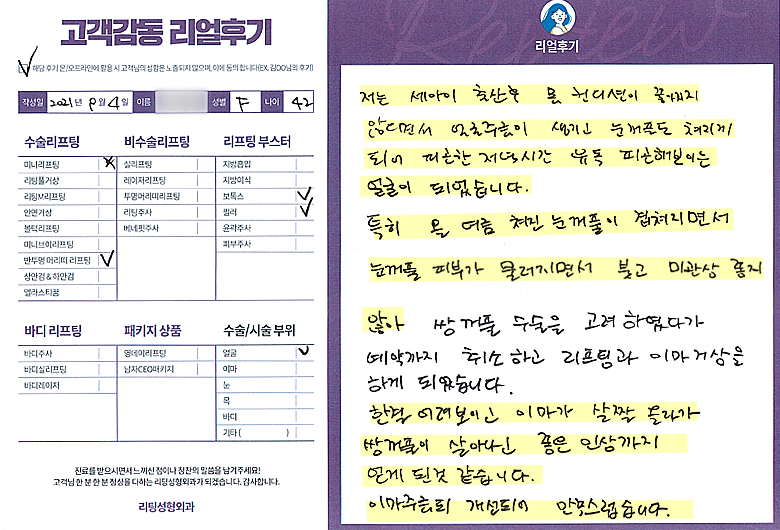 고객감동 리얼후기
해당 후기 온/오프라인에 활용 시 고객님의 성함은 노출되지 않으며, 이에 동의 합니다(EX. 김OO님의 후기)
작성일 2021년 9월 4일 이름 성별 F 나이 42
수술리프팅
미니리프팅
리팅풀거상
리팅M리프팅
안면거상
볼턱리프팅
미니브이리프팅
반투명 머리띠 리프팅
상안검 & 하안검
엘라스티꿈
비수술리프팅
실리프팅
레이저리프팅
투명머리띠리프팅
리팅주사
베네핏주사
리프팅 부스터
지방흡입
지방이식
보톡스
필러
윤곽주사
피부주사
바디 리프팅
바디주사
바디실리프팅
바디레이저
패키지 상품
영데이리프팅
남자CEO패키지
수술/시술 부위
얼굴
이마
눈
목
바디
기타 ( )
진료를 받으시면서 느끼신 점이나 칭찬의 말씀을 남겨주세요!
고객님 한 분 한 분 정성을 다하는 리팅성형외과가 되겠습니다. 감사합니다.
리팅성형외과
Review
리얼후기
저는 세아이 출산후 몸 컨디션이 좋아지지
않으면서 잔주름이 생기고 눈꺼풀도 쳐지게
되어 피곤한 저녁시간 유독 피곤해보이는
얼굴이 되었습니다.
특히 올 여름 쳐진 눈꺼풀이 겹쳐지면서
눈꺼풀 피부가 물러지면서 붓고 미관상 좋지
않아 쌍꺼풀 수술을 고려 하였다가
예약까지 취소하고 리프팅과 이마거상을
하게 되었습니다.
한결 어려보이고 이마가 살짝 올라가
쌍꺼풀이 살아나신 좋은 인상까지
얻게 된것 같습니다.
이마주름퇴 개선되어 만족스럽습니다.